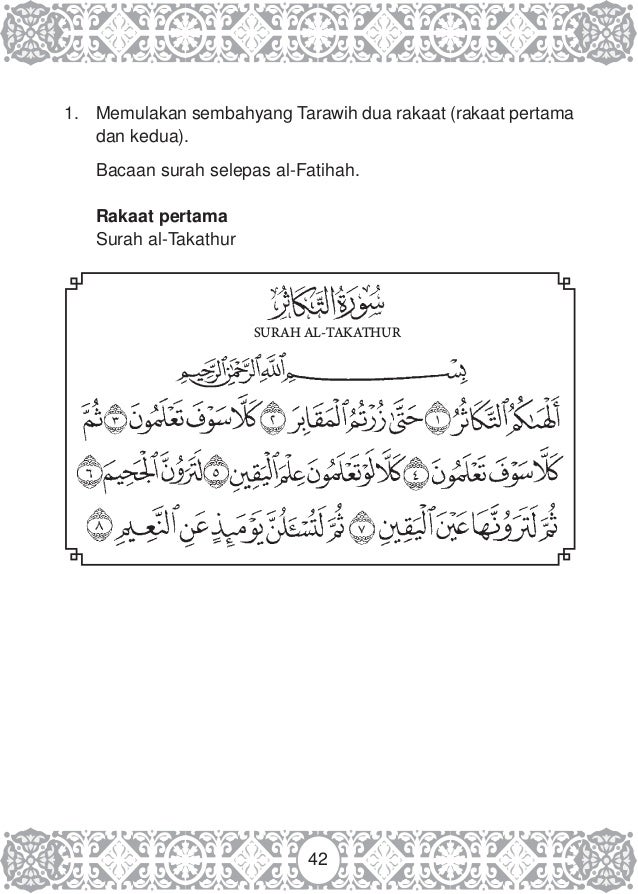 1. Memulakan sembahyang Tarawih dua rakaat (rakaat pertama
dan kedua).
Bacaan surah selepas al-Fatihah.
Rakaat pertama
Surah al-Takathur
سُورَةُ التَّكَاثُرِ
SURAH AL-TAKATHUR
بِسْمِ ٱللَّهِ ٱلرَّحْمَٰنِ ٱلرَّحِيمِ
أَلْهَىٰكُمُ ٱلتَّكَاثُرُ ١ حَتَّىٰ زُرْتُمُ ٱلْمَقَابِرَ ٢ كَلَّا سَوْفَ تَعْلَمُونَ ٣ ثُمَّ
كَلَّا سَوْفَ تَعْلَمُونَ ٤ كَلَّا لَوْ تَعْلَمُونَ عِلْمَ ٱلْيَقِينِ ٥ لَتَرَوُنَّ ٱلْجَحِيمَ ٦
ثُمَّ لَتَرَوُنَّهَا عَيْنَ ٱلْيَقِينِ ٧ ثُمَّ لَتُسْـَٔلُنَّ يَوْمَئِذٍ عَنِ ٱلنَّعِيمِ ٨
42